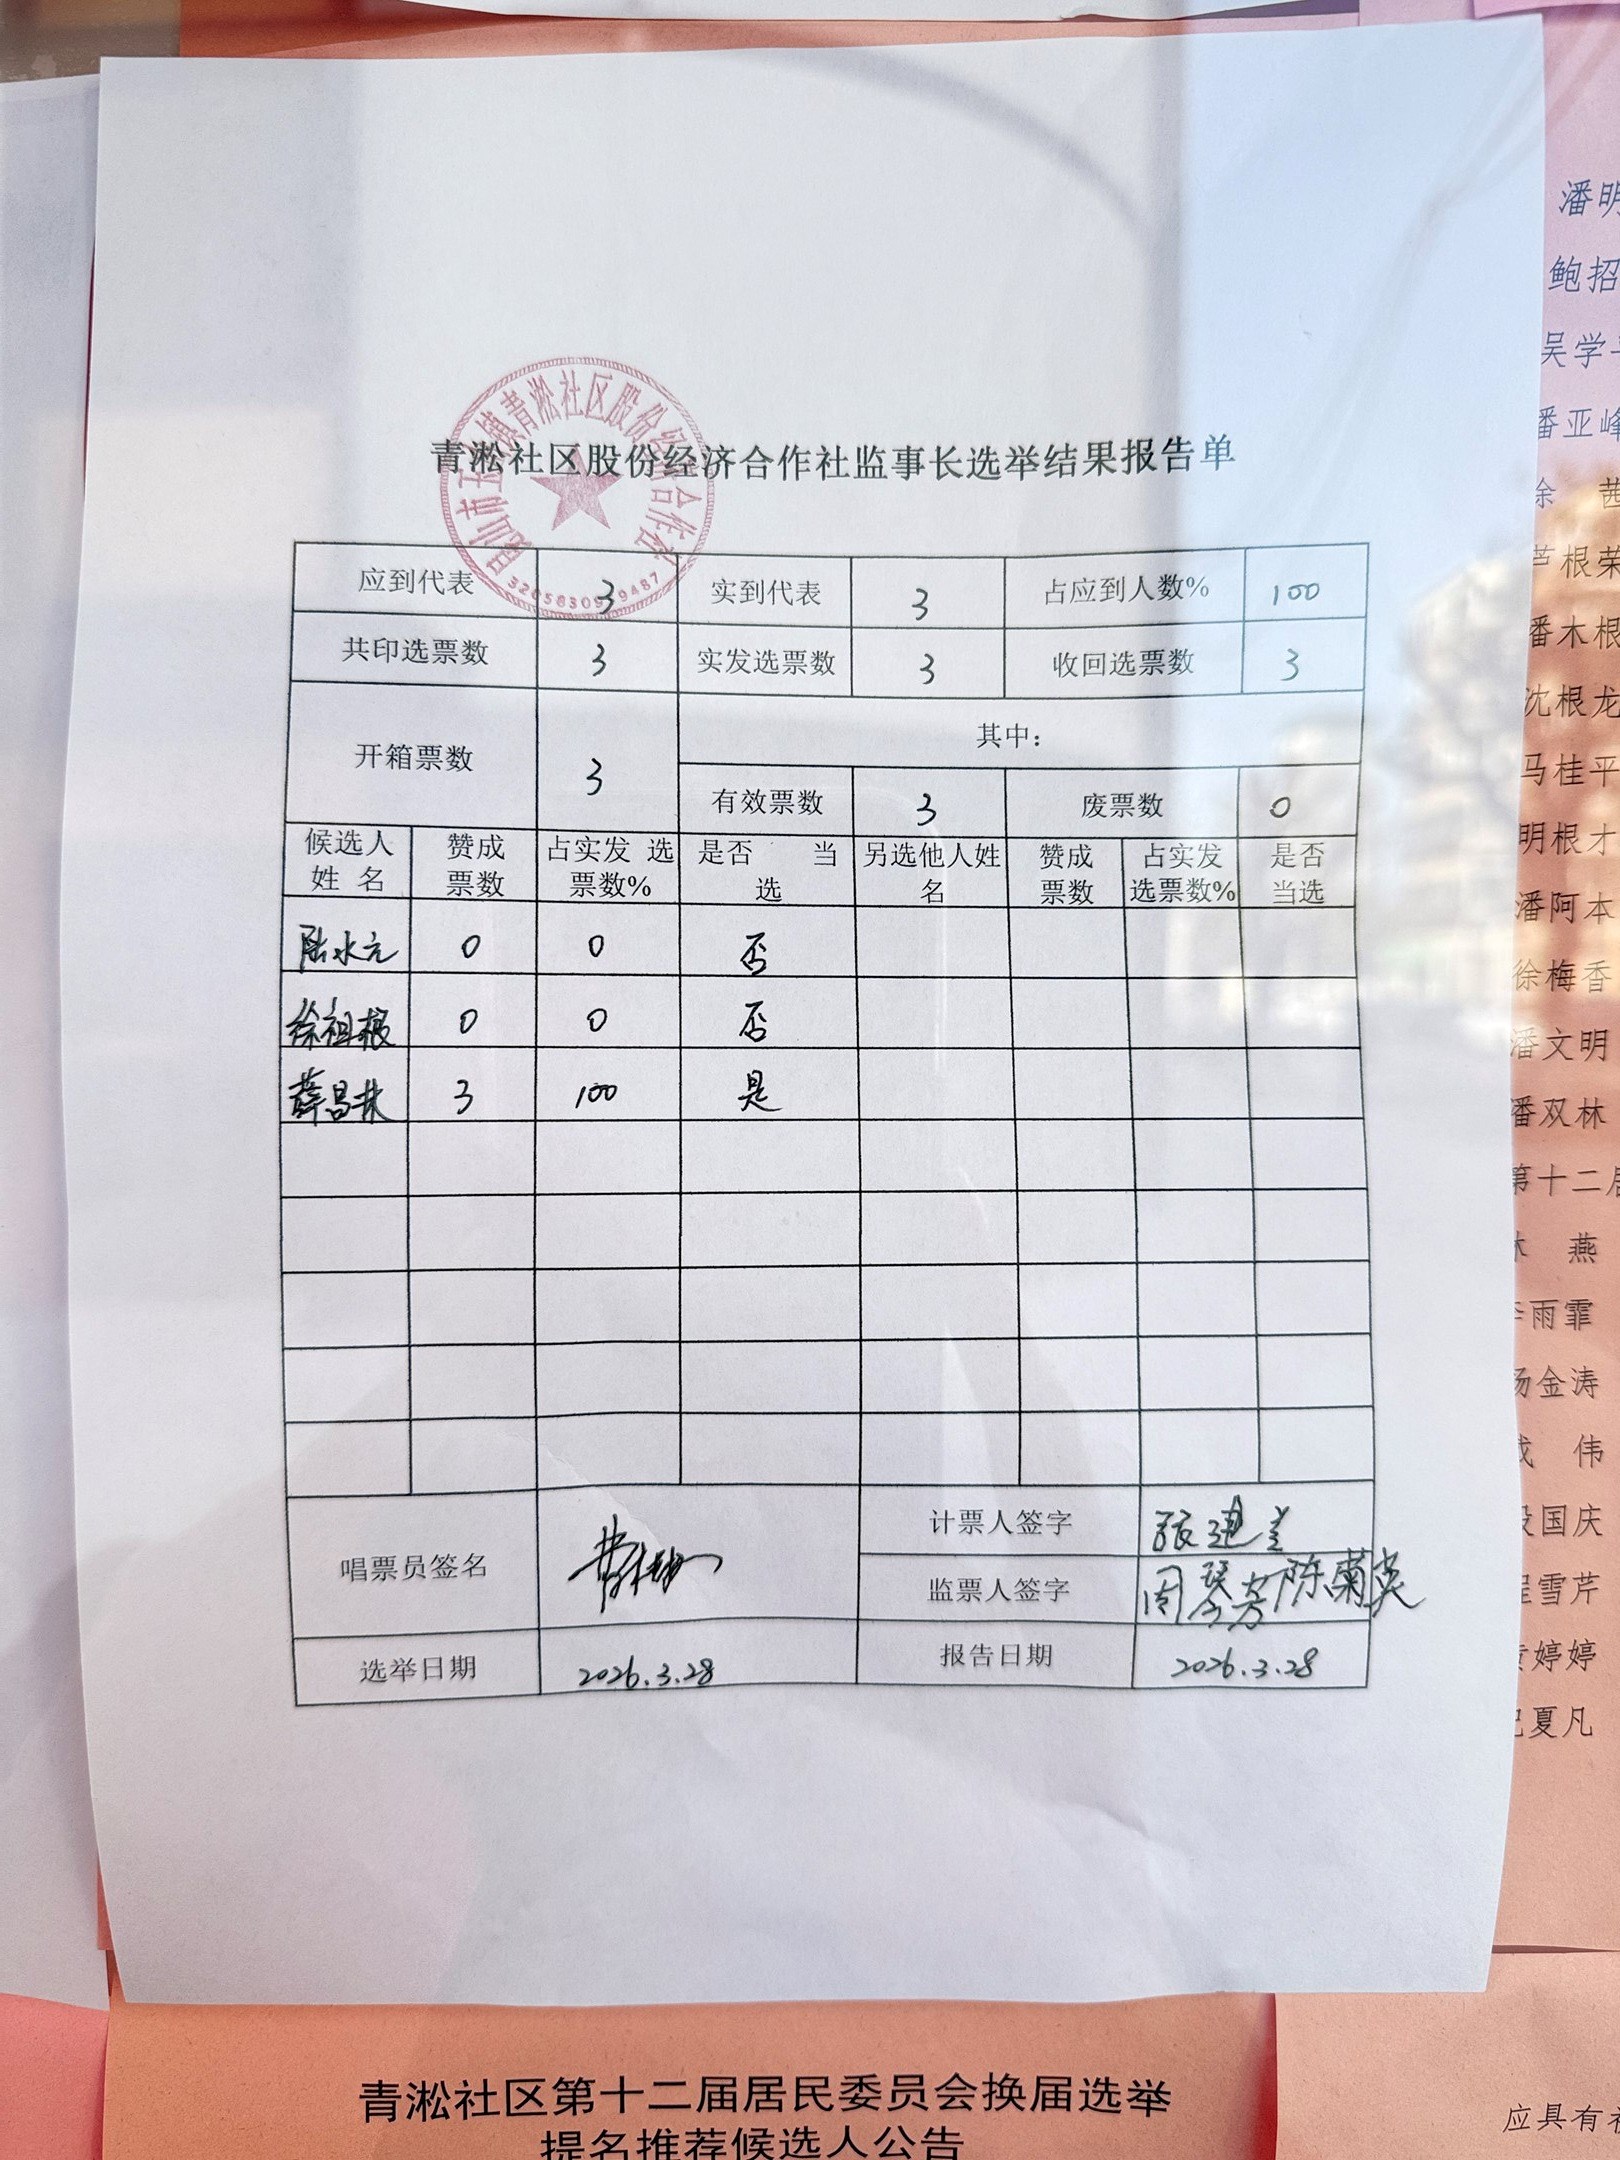 青淞社区股份经济合作社监事长选举结果报告单
昆山市玉山镇青淞社区股份经济合作社
应到代表 3 实到代表 3 占应到人数% 100
共印选票数 3 实发选票数 3 收回选票数 3
开箱票数 3 其中：
有效票数 3 废票数 0
候选人姓名 赞成票数 占实发选票数% 是否当选 另选他人姓名 赞成票数 占实发选票数% 是否当选
陆水元 0 0 否
徐祖根 0 0 否
薛昌林 3 100 是
唱票员签名 计票人签字 张建兰
监票人签字 周琴芳 陈菊英
选举日期 2026.3.28 报告日期 2026.3.28
潘明
鲍招
吴学
潘亚峰
徐 茜
芦根荣
潘木根
沈根龙
马桂平
明根才
潘阿本
徐梅香
潘文明
潘双林
第十二届
林 燕
李雨霏
杨金涛
伟
国庆
程雪芹
婷婷
夏凡
青淞社区第十二届居民委员会换届选举
提名推荐候选人公告
应具有